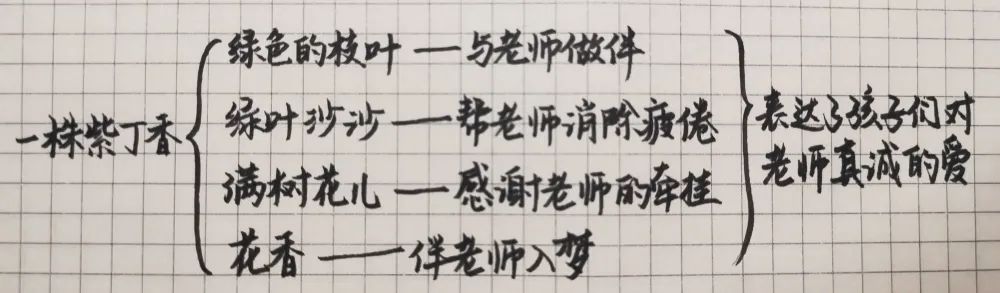 一株紫丁香
绿色的枝叶——与老师做伴
绿叶沙沙——帮老师消除疲倦
满树花儿——感谢老师的牵挂
花香——伴老师入梦
表达了孩子们对
老师真诚的爱